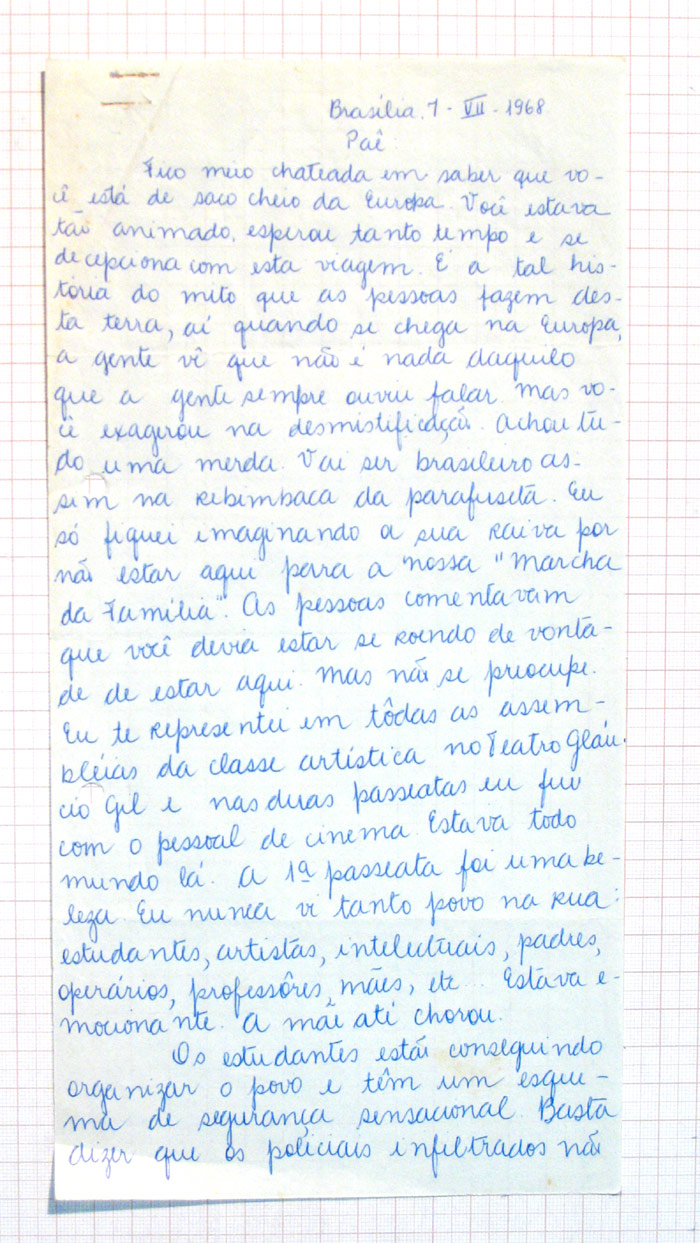 Brasília, 7 - VII - 1968
Paê
Fico meio chateada em saber que vo-
cê está de saco cheio da Europa. Você estava
tão animado, esperou tanto tempo e se
decepciona com esta viagem. É a tal his-
tória do mito que as pessoas fazem des-
ta terra, aí quando se chega na Europa,
a gente vê que não é nada daquilo
que a gente sempre ouviu falar. Mas vo-
cê exagerou na desmistificação. Achou tu-
do uma merda. Vai ser brasileiro as-
sim na rebimbaca da parafuseta. Eu
só fiquei imaginando a sua raiva por
não estar aqui para a nossa "Marcha
da Família". As pessoas comentavam
que você devia estar se roendo de vonta-
de de estar aqui. Mas não se preocupe.
Eu te representei em tôdas as assem-
bléias da classe artística no Teatro Gláu-
cio Gil e nas duas passeatas eu fui
com o pessoal de cinema. Estava todo
mundo lá. A 1ª passeata foi uma be-
leza. Eu nunca vi tanto povo na rua:
estudantes, artistas, intelectuais, padres,
operários, professôres, mães, etc... Estava e-
mocionante. A mãe até chorou.
Os estudantes estão conseguindo
organizar o povo e têm um esque-
ma de segurança sensacional. Basta
dizer que os policiais infiltrados não